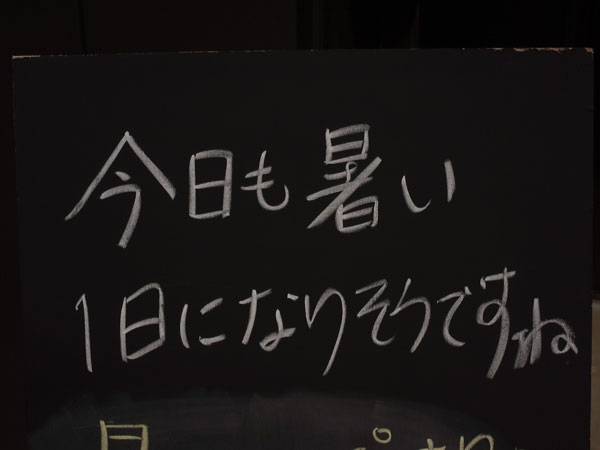 今日も暑い
1日になりそうですね